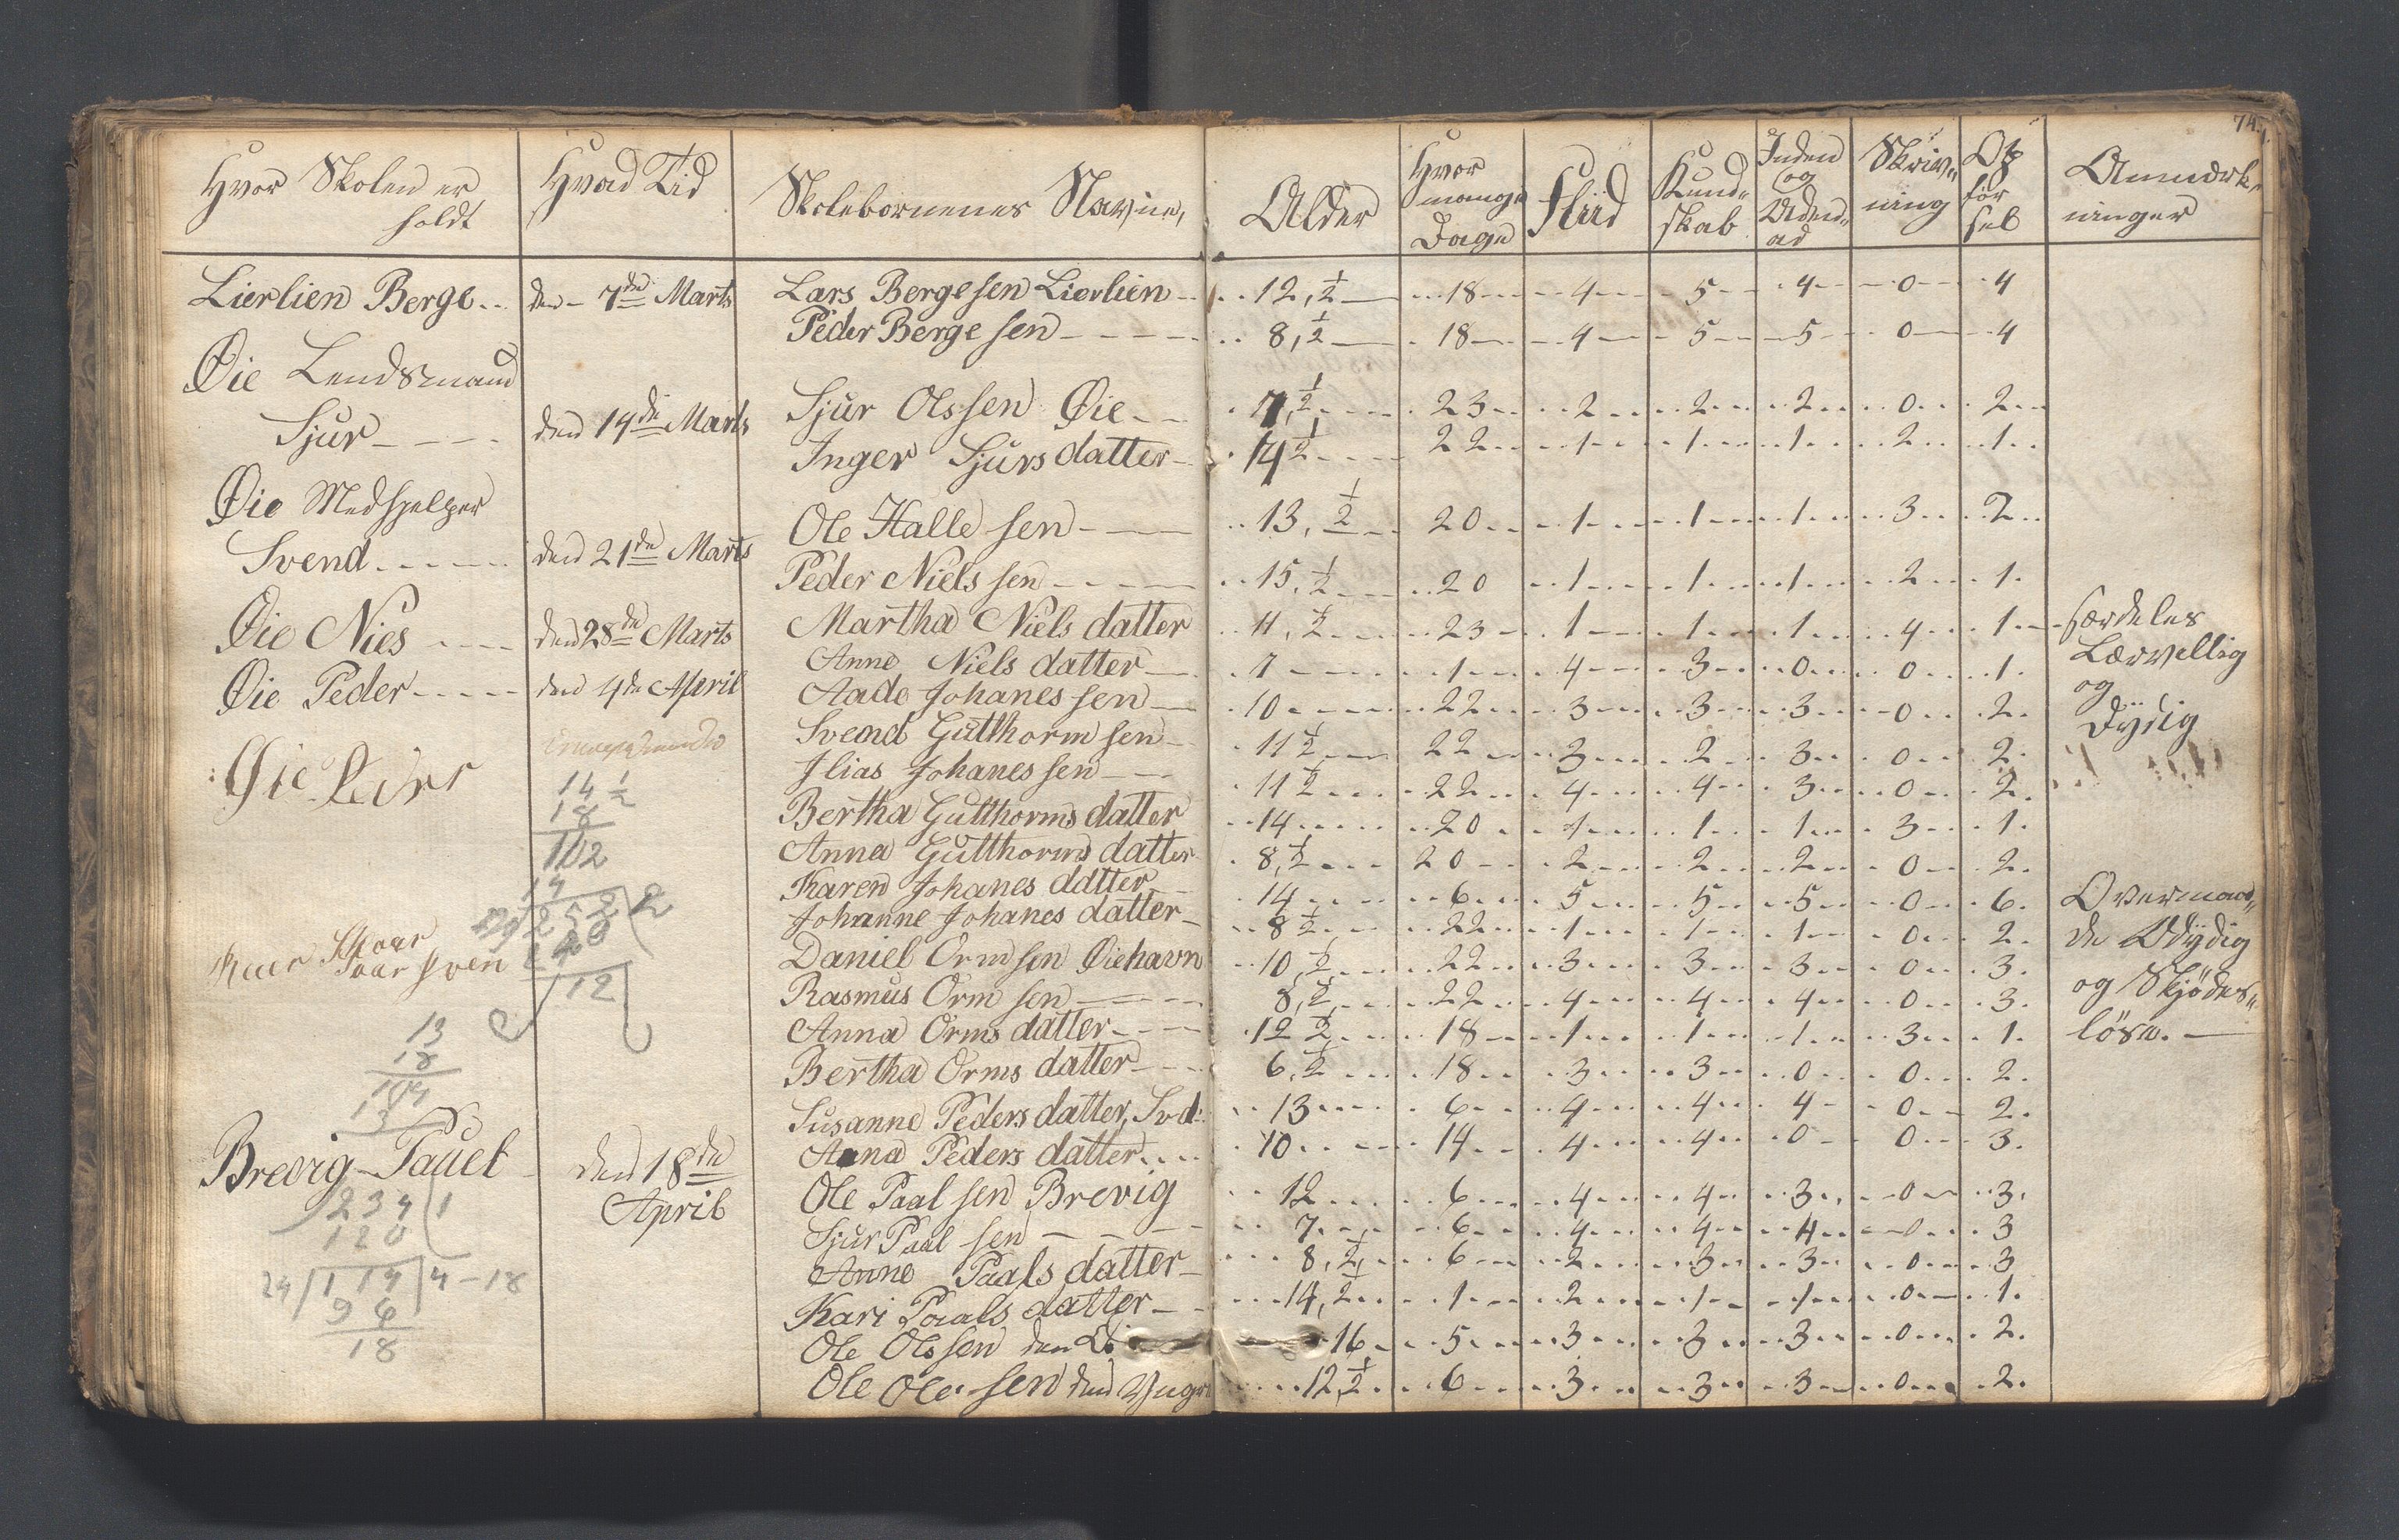 74.
Hvor Skolen er holdt | Hvad Tid | Skolebornenes Navne, | Alder | Hvor mange Dage | Fliid | Kund- skab | Inden og Uden- ad | Skriv- ning | Op før sel | Anmærk- ninger
Lierlien Berge.. | den - 7de Marts | Lars Bergesen Lierlien | 12,½ | 18 | 4 | 5 | 4 | 0 | 4
Peder Bergesen | 8,½ | 18 | 4 | 5 | 5 | 0 | 4
Øie Lendsmand
Sjur | den 14de Marts | Sjur Olssen Øie | 7,½ | 23 | 2 | 2 | 2 | 0 | 2
Inger Sjursdatter | 14½ | 22 | 1 | 1 | 1 | 2 | 1
Øie Medhjelper
Svend | den 21de Marts | Ole Hallesen | 13,½ | 20 | 1 | 1 | 1 | 3 | 2
Peder Nielssen | 15,½ | 20 | 1 | 1 | 1 | 2 | 1
Øie Nies | den 28de Marts | Martha Niels datter | 11,½ | 23 | 1 | 1 | 1 | 4 | 1 | særdeles
Lærvellig
og
Dydig
Anne Niels datter | 7 | 1 | 4 | 3 | 0 | 0 | 1
Øie Peder | den 4de April | Aade Johanessen | 10 | 22 | 3 | 3 | 3 | 0 | 2
Svend Gutthormsen | 11½ | 22 | 3 | 2 | 3 | 0 | 2
Øie Lars | Ilias Johanessen | 11½ | 22 | 4 | 4 | 3 | 0 | 2
Bertha Gutthorms datter | 14 | 20 | 1 | 1 | 1 | 3 | 1
Anna Gutthorms datter | 8,½ | 20 | 2 | 2 | 2 | 0 | 2
Karen Johanes datter | 14 | 6 | 5 | 5 | 5 | 0 | 6 | Overmaa-
de Udydig
og Skjødes-
løse.
Johanne Johanes datter | 8½ | 22 | 1 | 1 | 1 | 0 | 2
Daniel Ormsen Øiehavn | 10,½ | 22 | 3 | 3 | 3 | 0 | 3
Rasmus Ormsen | 8,½ | 22 | 4 | 4 | 4 | 0 | 3
Anna Orms datter | 12½ | 18 | 1 | 1 | 1 | 3 | 1
Bertha Orms datter | 6,½ | 18 | 3 | 3 | 0 | 0 | 2
Susanne Peders datter, Svd: | 13 | 6 | 4 | 4 | 4 | 0 | 2
Anna Peders datter | 10 | 14 | 4 | 4 | 0 | 0 | 3
Brevig Pauel | den 18de April | Ole Paalsen Brevig | 12 | 6 | 4 | 4 | 3 | 0 | 3
Sjur Paalsen | 7 | 6 | 4 | 4 | 4 | 0 | 3
Anne Paals datter | 8,½ | 6 | 2 | 3 | 3 | 0 | 3
Kari Paals datter | 14,½ | 1 | 2 | 1 | 1 | 0 | 1
Ole Olssen den | 16 | 5 | 3 | 3 | 3 | 0 | 2
Ole Olesen den Yngre | 12,½ | 6 | 3 | 3 | 3 | 0 | 2
14½
18
102
14
252
12
13
18
104
13
234 | 1
120
24 | 114 | 4 - 18
96
18